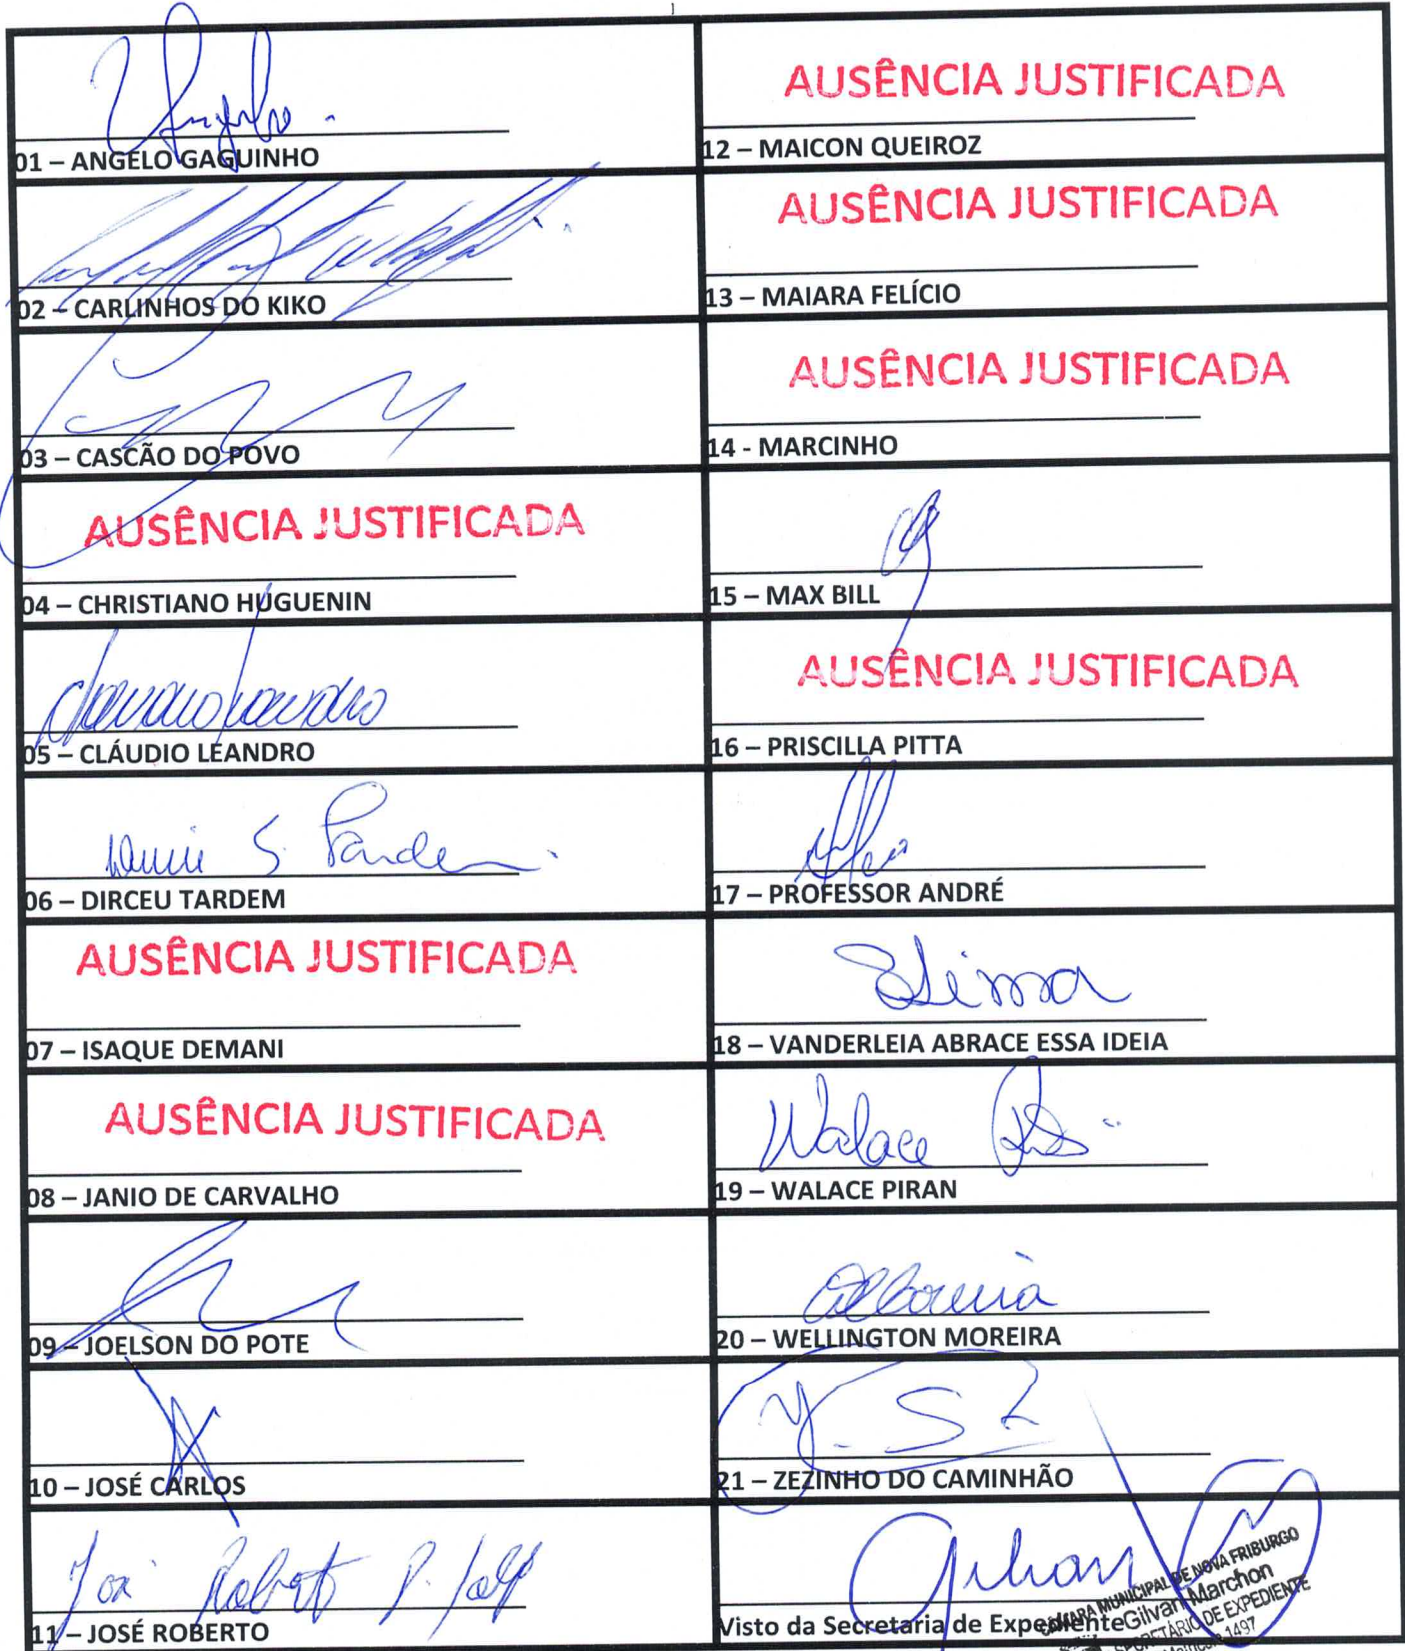 01 – ANGELO GAGUINHO
02 – CARLINHOS DO KIKO
03 – CASCÃO DO POVO
AUSÊNCIA JUSTIFICADA
04 – CHRISTIANO HUGUENIN
05 – CLÁUDIO LEANDRO
06 – DIRCEU TARDEM
AUSÊNCIA JUSTIFICADA
07 – ISAQUE DEMANI
AUSÊNCIA JUSTIFICADA
08 – JANIO DE CARVALHO
09 – JOELSON DO POTE
10 – JOSÉ CARLOS
José Roberto
11 – JOSÉ ROBERTO
AUSÊNCIA JUSTIFICADA
12 – MAICON QUEIROZ
AUSÊNCIA JUSTIFICADA
13 – MAIARA FELÍCIO
AUSÊNCIA JUSTIFICADA
14 - MARCINHO
15 – MAX BILL
AUSÊNCIA JUSTIFICADA
16 – PRISCILLA PITTA
17 – PROFESSOR ANDRÉ
18 – VANDERLEIA ABRACE ESSA IDEIA
Walace
19 – WALACE PIRAN
20 – WELLINGTON MOREIRA
21 – ZEZINHO DO CAMINHÃO
Gilvan
Visto da Secretaria de Expediente
CÂMARA MUNICIPAL DE NOVA FRIBURGO
Gilvan Marchon
SECRETÁRIO DE EXPEDIENTE
Matrícula 1497